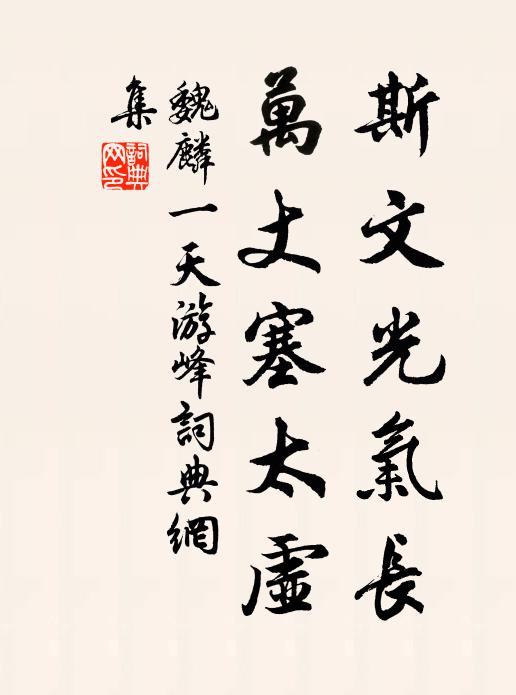 斯文光氣長
萬丈塞太虛
魏麟一天游峰詞典網
集
詞典網印